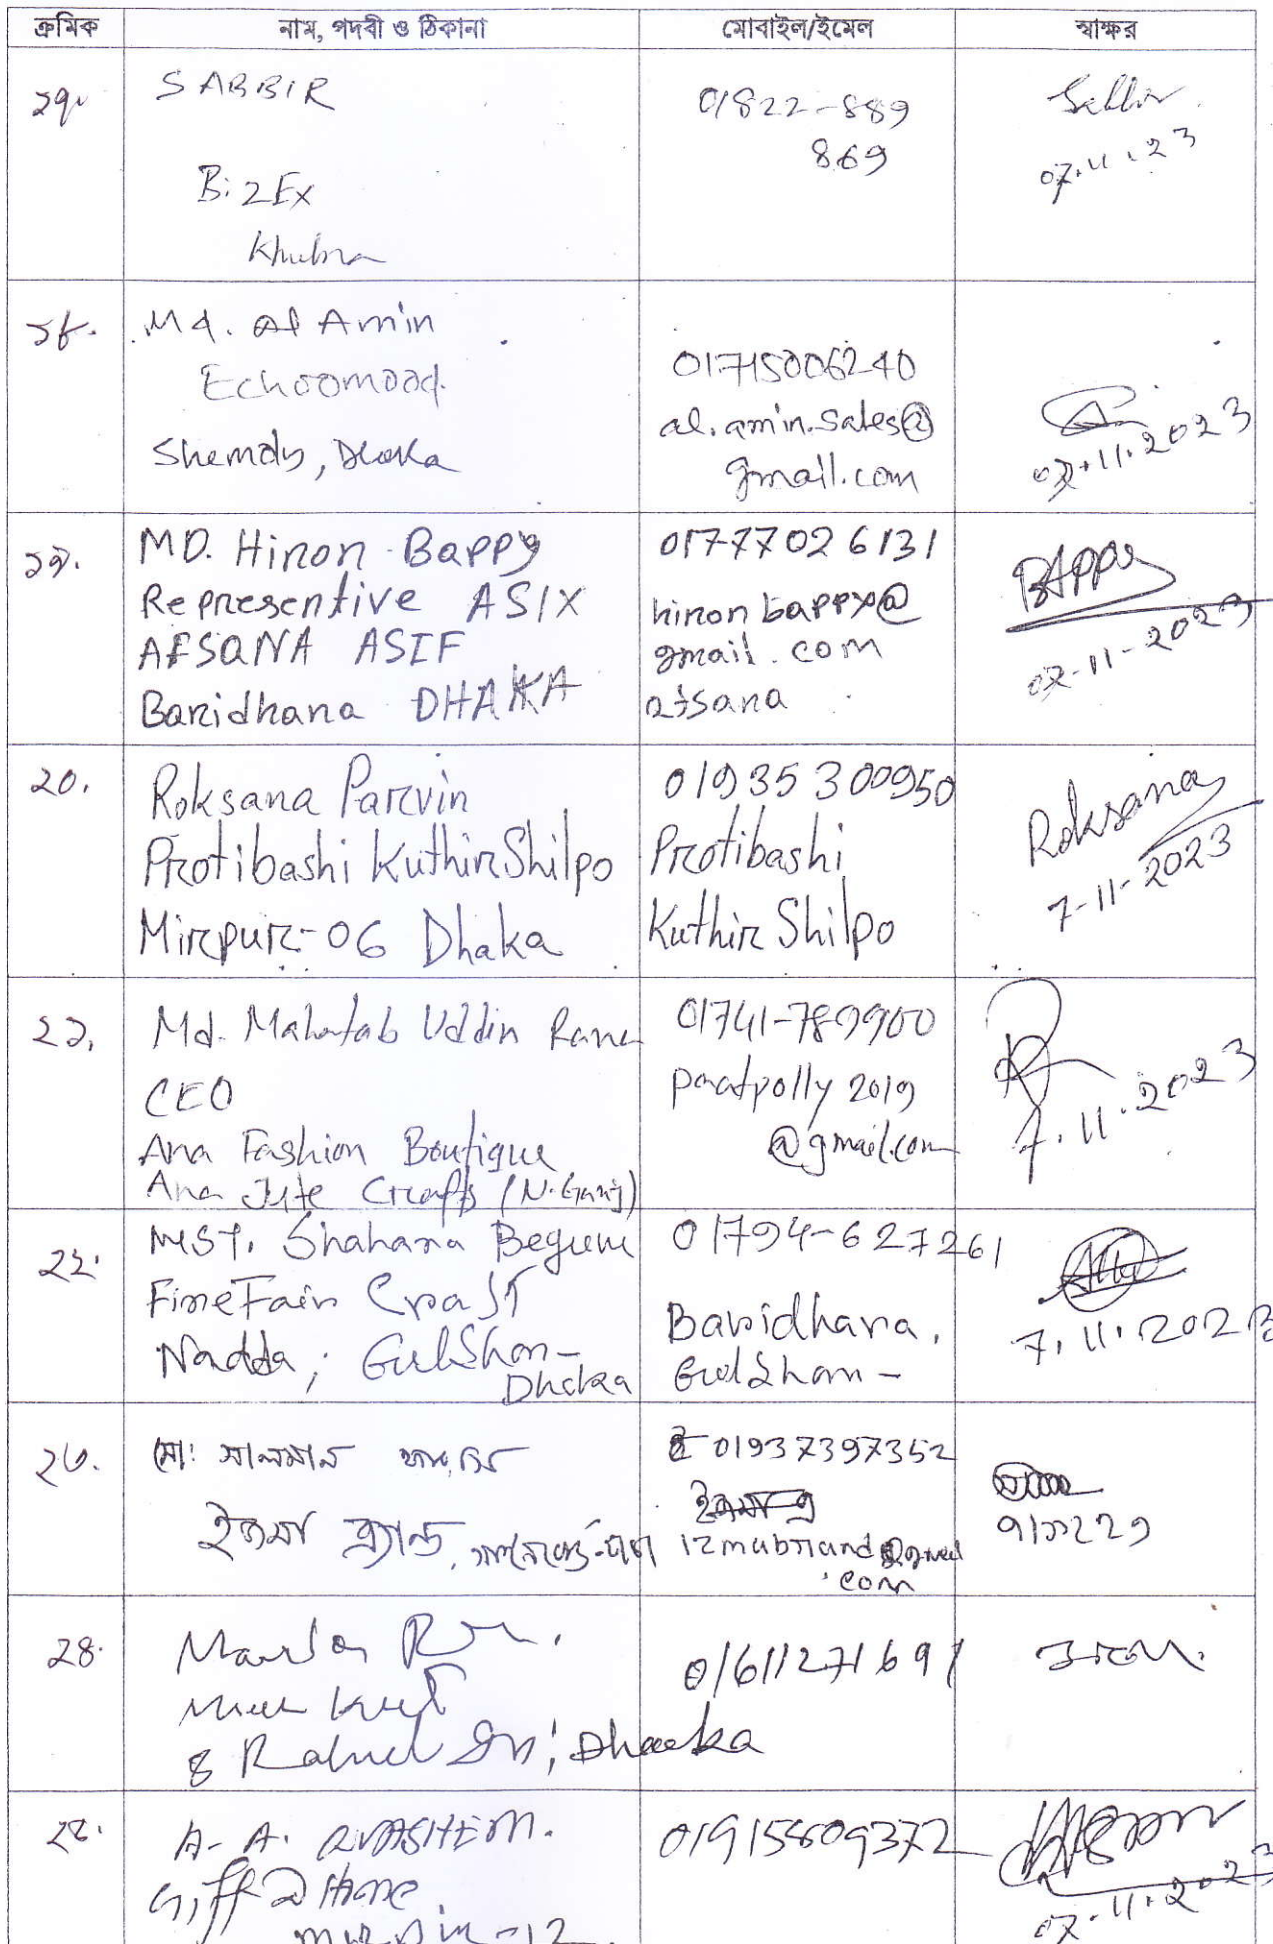 ক্রমিক নাম, পদবী ও ঠিকানা মোবাইল/ইমেল স্বাক্ষর
১৭. SABBIR 01822-889
869
BizEx
Khulna
07.11.23
১৮. Md. Al Amin
Dhaka
01715006240
al.amin.sales@
gmail.com
07.11.2023
১৯. MD. Hiron Bappy
Representive ASIX
AFSANA ASIF
Baridhana DHAKA
01777026131
hironbappy@
gmail.com
afsana
BAppy
07-11-2023
২০. Roksana Parvin
Protibashi Kuthir Shilpo
Mirpur-06 Dhaka
01935300950
Protibashi
Kuthir Shilpo
Roksana
7-11-2023
২১. Md. Mahatab Uddin Rana
CEO
Ana Fashion Boutique
Ana Jute Crafts (N.Ganj)
01741-789900
paatpolly2019
@gmail.com
7.11.2023
২২. MST. Shahana Begum
FineFair Craft
Nadda, Gulshan-
Dhaka
01794-627261
Baridhara,
Gulshan-
7.11.2023
২৩. মো: সালমান
ইজমা ব্র্যান্ড,
01937397352
izmabrand@gmail
.com
২৪.
Dhaka
01611271691
২৫. A. A.
01915809372
07.11.2023